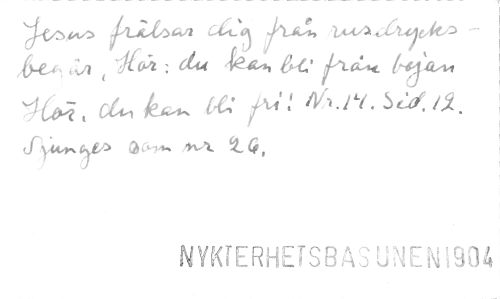 Jesus frälsar dig från rusdrycks-
begär, Hör: du kan bli från bojan
Hör, du kan bli fri! Nr. 14. Sid. 12.
Sjunges som nr 26.
NYKTERHETSBASUNEN 1904